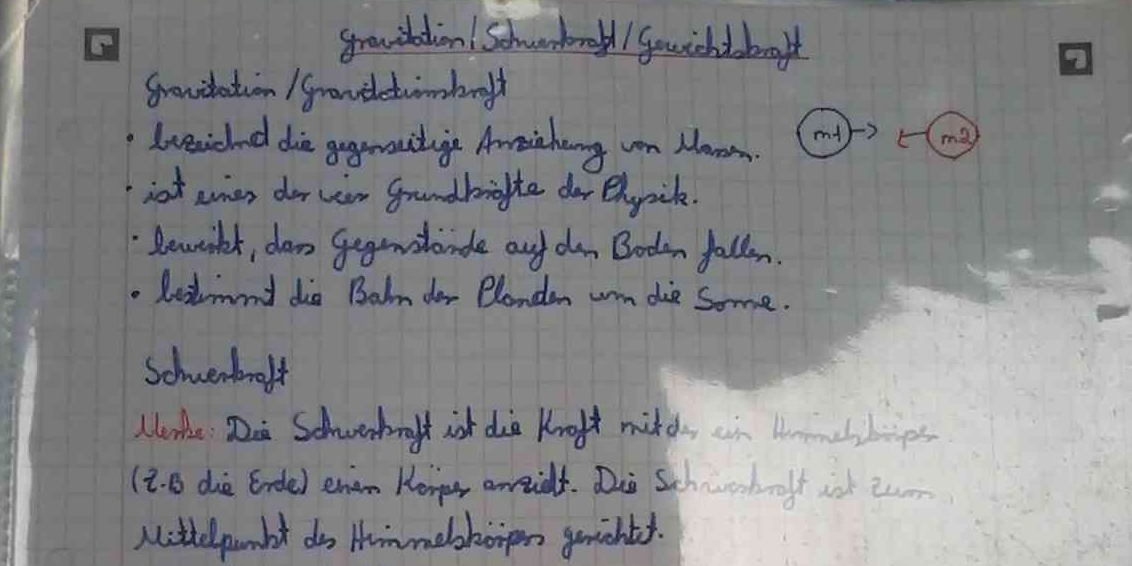 Gravitation/Schwerkraft/Gewichtskraft
Gravitation/Gravitationskraft
• bezeichnet die gegenseitige Anziehung von Massen.
m1 m2
• ist eines der vier Grundkräfte der Physik.
• bewirkt, dass Gegenstände auf den Boden fallen.
• bestimmt die Bahn der Planeten um die Sonne.
Schwerkraft
Merke: Die Schwerkraft ist die Kraft mit der ein Himmelskörper
(z.B die Erde) einen Körper anzieht. Die Schwerkraft ist zum
Mittelpunkt des Himmelskörpers gerichtet.